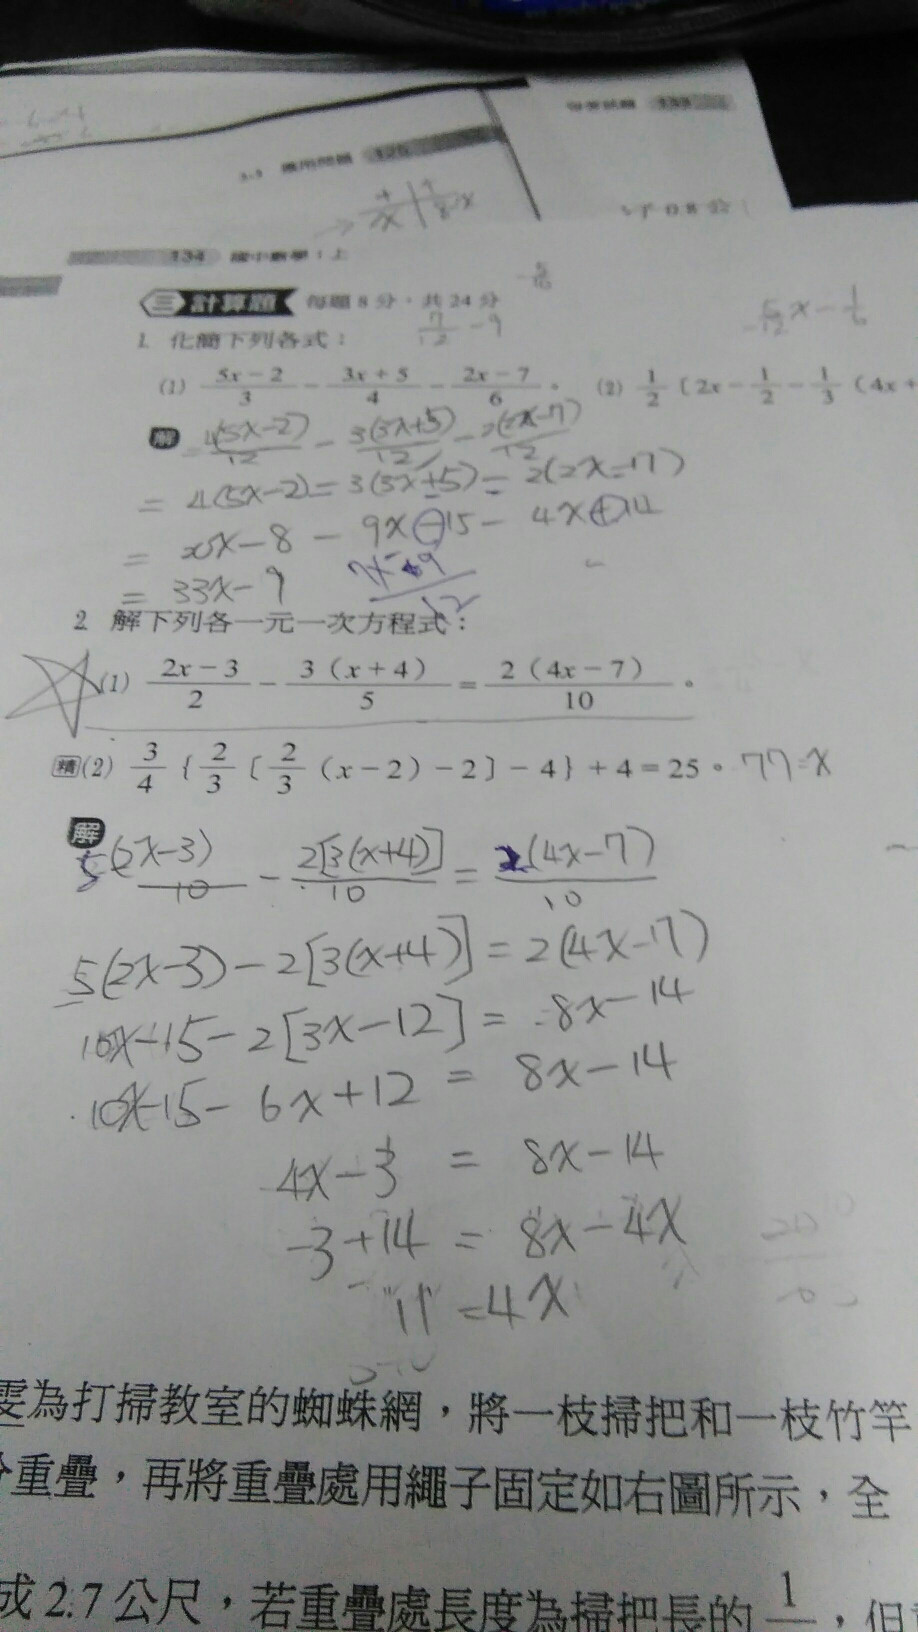 3-3 應用問題 125
了 0.8 公
134 國中數學1上
三 計算題 每題8分,共24分
1. 化簡下列各式:
7/12 -9
-5/12 x - 1/6
(1) (5x-2)/3 - (3x+5)/4 - (2x-7)/6。 (2) 1/2〔2x - 1/2 - 1/3(4x+
解 = 4(5x-2)/12 - 3(3x+5)/12 - 2(2x-7)/12
= 4(5x-2) = 3(3x+5) = 2(2x-7)
= x-8 - 9x-15 - 4x+14
= 33x-9
2. 解下列各一元一次方程式:
(1) (2x-3)/2 - 3(x+4)/5 = 2(4x-7)/10。
精(2) 3/4{2/3〔2/3(x-2)-2〕-4}+4=25。 77=x
解
5(2x-3)/10 - 2[3(x+4)]/10 = 2(4x-7)/10
5(2x-3)-2[3(x+4)] = 2(4x-7)
10x-15-2[3x-12] = 8x-14
10x-15-6x+12 = 8x-14
4x-3 = 8x-14
-3+14 = 8x-4x
11 = 4x
雯為打掃教室的蜘蛛網,將一枝掃把和一枝竹竿
分重疊,再將重疊處用繩子固定如右圖所示,全
成2.7公尺,若重疊處長度為掃把長的 1 ,但